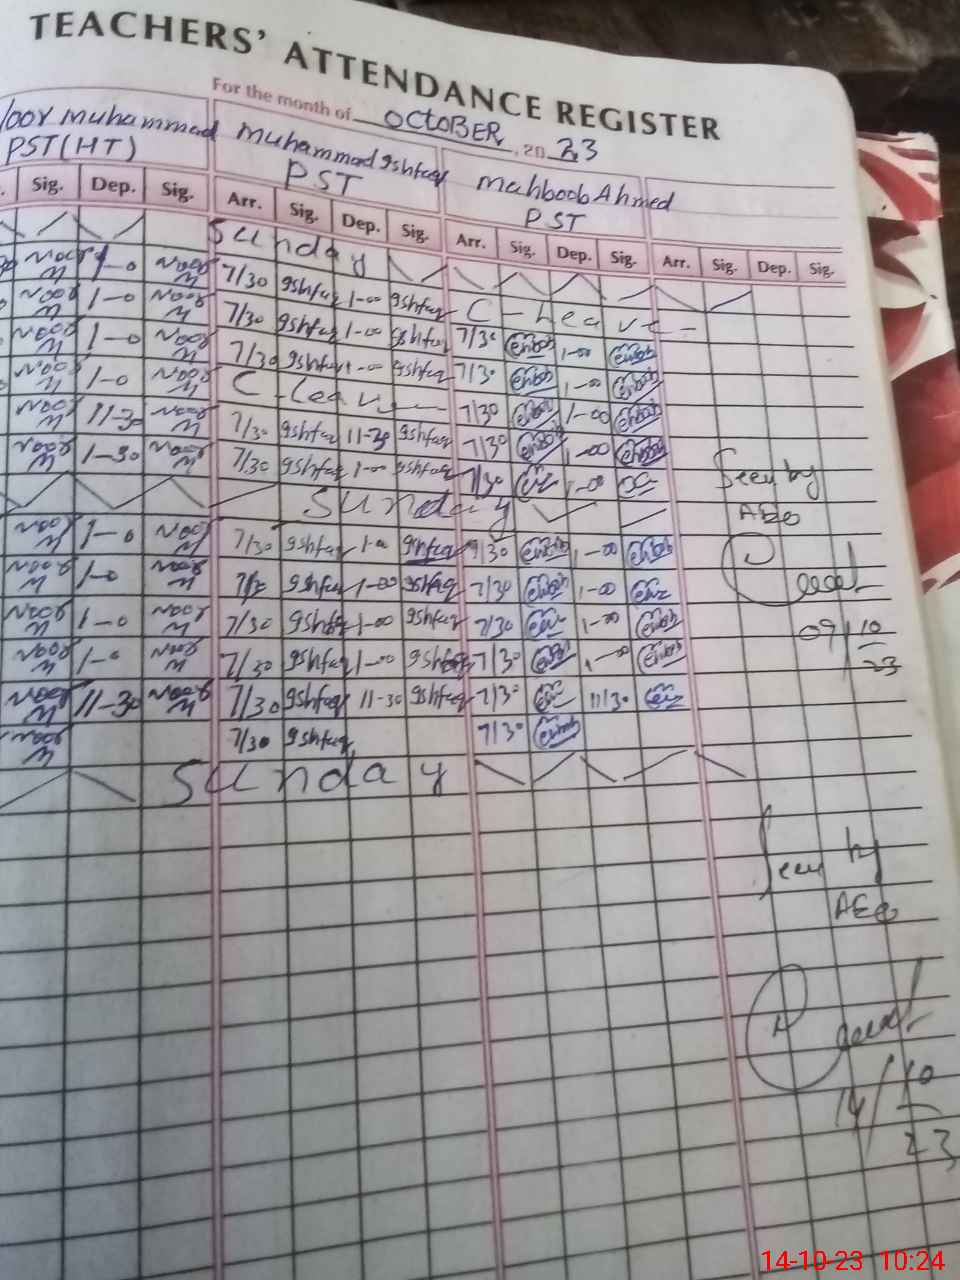 TEACHERS' ATTENDANCE REGISTER
For the month of OCTOBER, 2023
oor muhammad muhammad gshfaq mahboob Ahmed
PST(HT) PST PST
Sig. Dep. Sig. Arr. Sig. Dep. Sig. Arr. Sig. Dep. Sig. Arr. Sig. Dep. Sig.
Sunday
Noor M 1-0 Noor M 7/30 gshfaq 1-00 gshfaq C-Leave
Noor M 1-0 Noor M 7/30 gshfaq 1-00 gshfaq 7/30 1-00
Noor M 1-0 Noor M 7/30 gshfaq 1-00 gshfaq 7/30 1-00
Noor M 1-0 Noor M C-Leave 7/30 1-00
Noor M 11-30 Noor M 7/30 gshfaq 11-30 gshfaq 7/30 1-00
Noor M 1-30 Noor M 7/30 gshfaq 1-00 gshfaq 7/30 1-00
Sunday
Noor M 1-0 Noor M 7/30 gshfaq 1-0 gshfaq 7/30 1-00
Noor M 1-0 Noor M 7/30 gshfaq 1-00 gshfaq 7/30 1-00
Noor M 1-0 Noor M 7/30 gshfaq 1-00 gshfaq 7/30 1-00
Noor M 1-0 Noor M 7/30 gshfaq 1-00 gshfaq 7/30 1-00
Noor M 11-30 Noor M 7/30 gshfaq 11-30 gshfaq 7/30 11/30
Noor M 7/30 gshfaq 7/30
Sunday
Seen by
AEO
09/10
23
Seen by
AEO
14/10
23
14-10-23 10:24